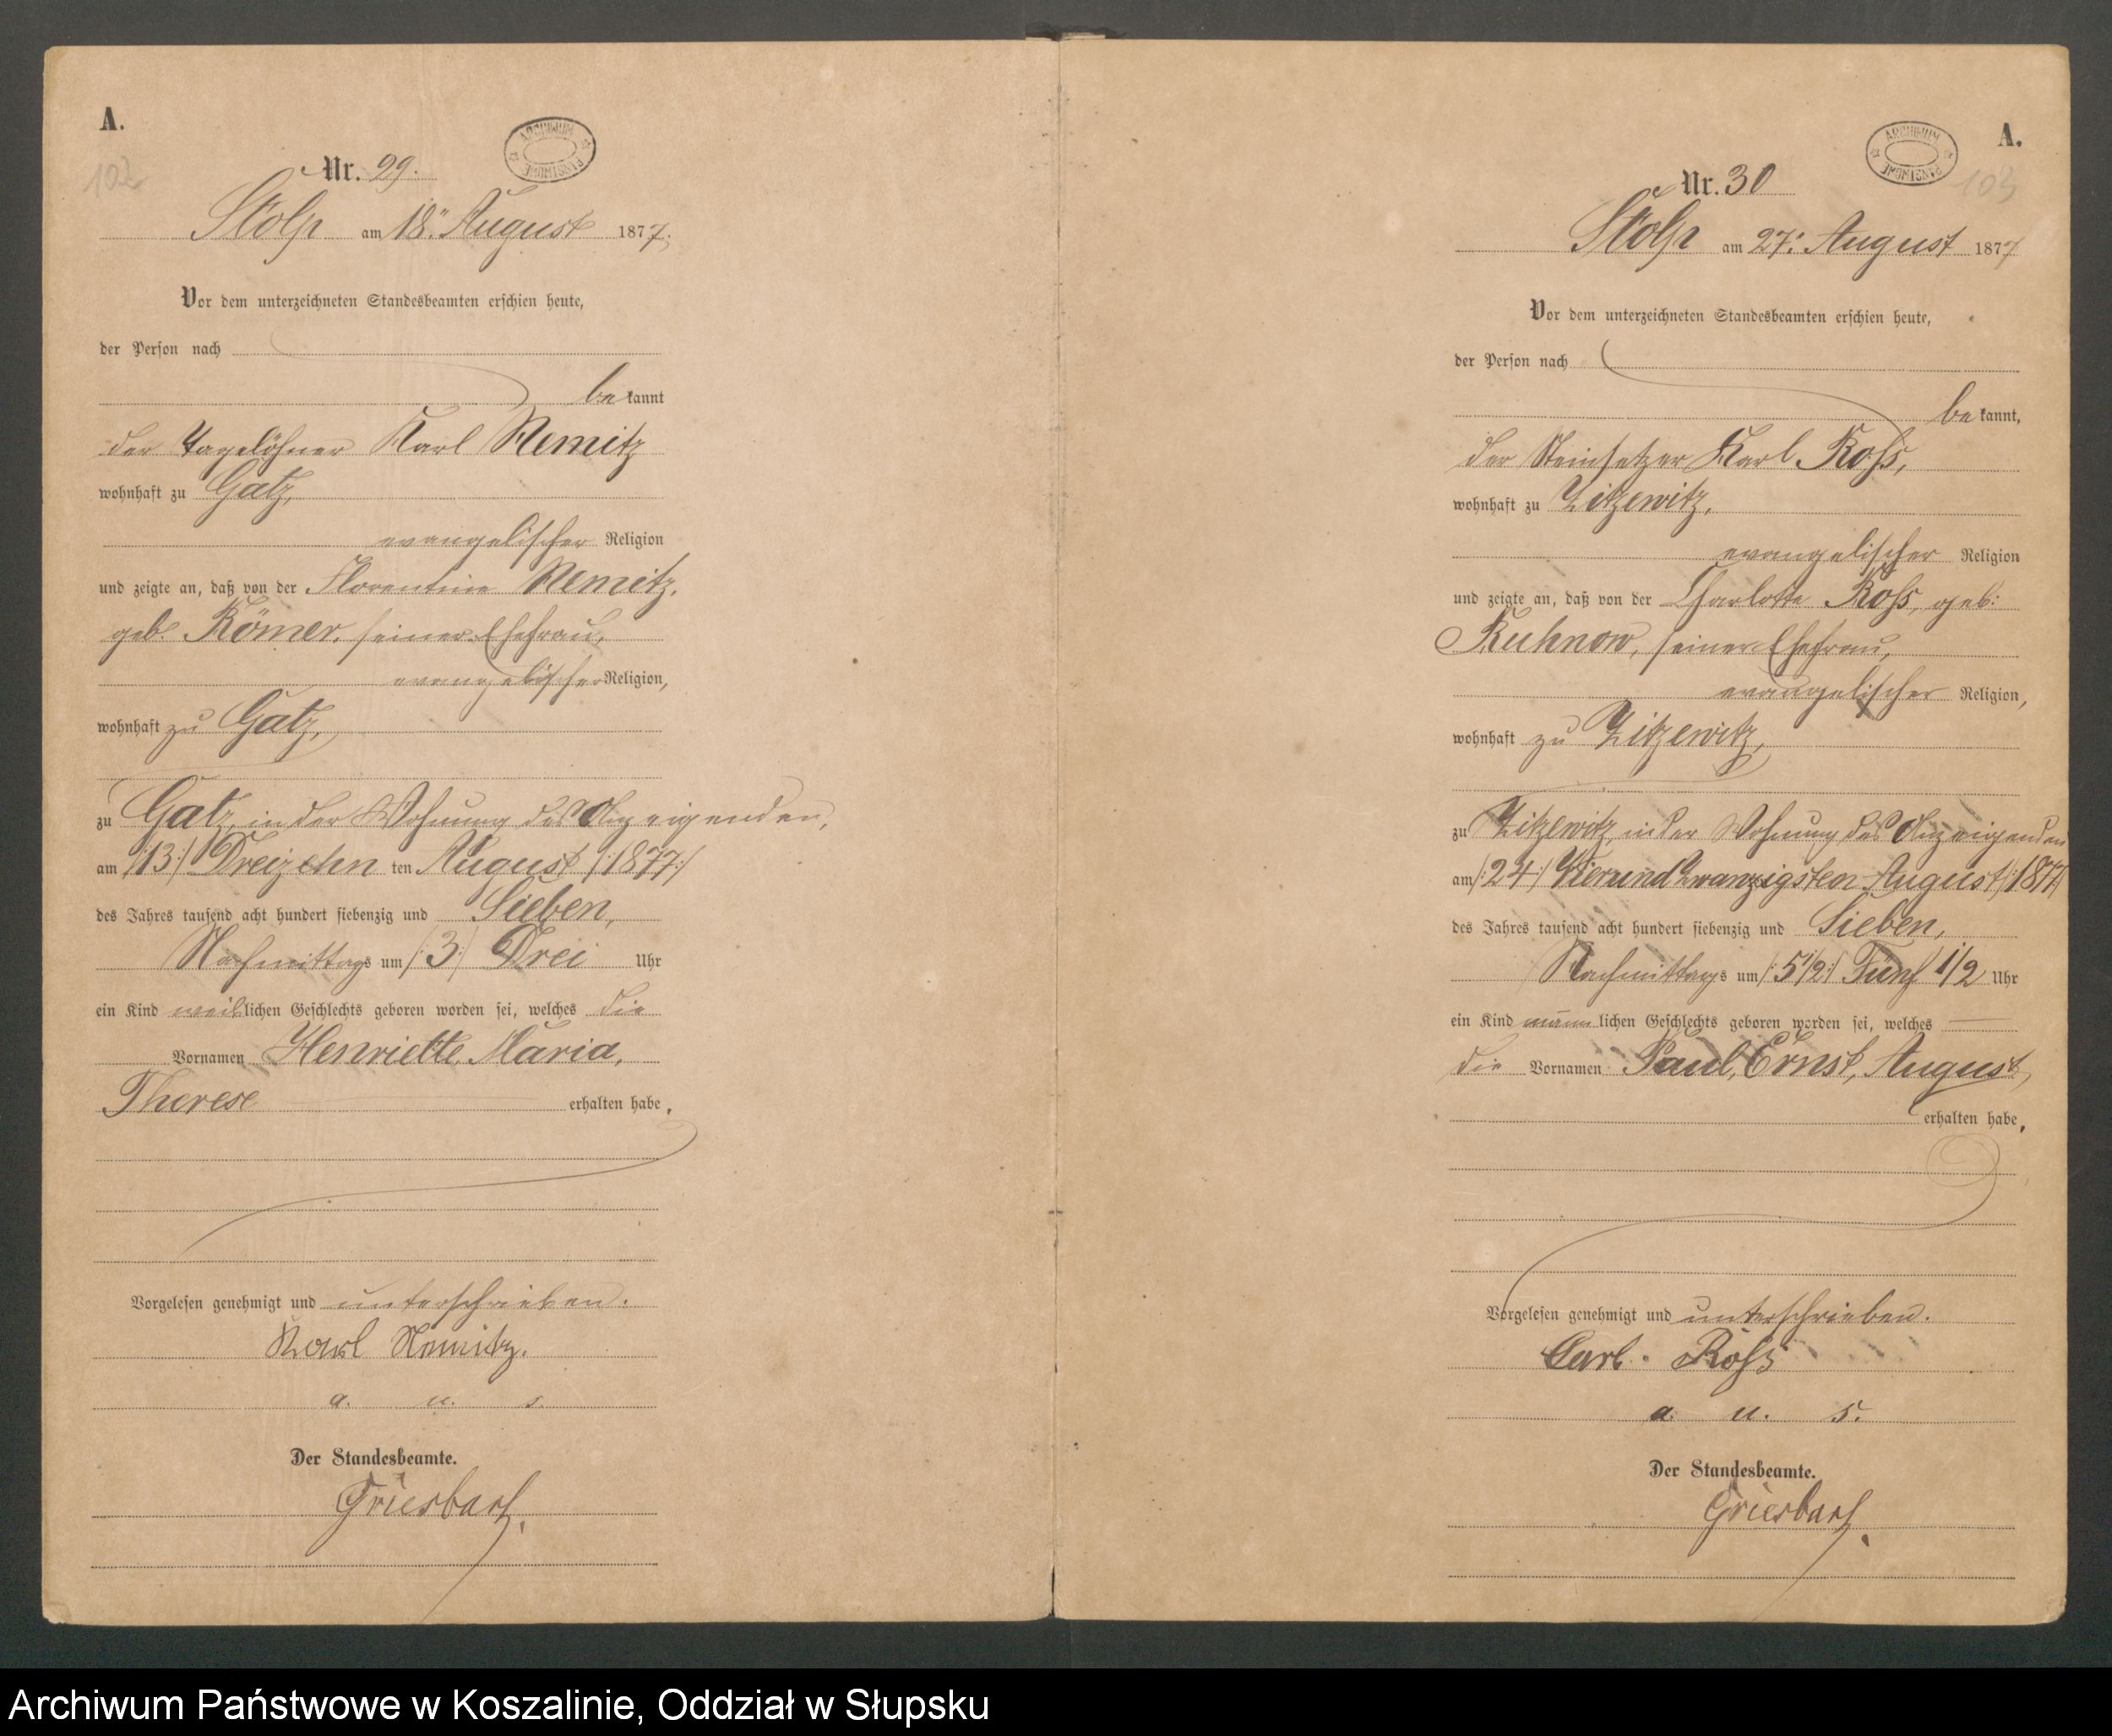 A.
102
Nr. 29.
ARCHIWUM PAŃSTWOWE
Stolp am 18ten August 1877.
Vor dem unterzeichneten Standesbeamten erschien heute,
der Person nach
bekannt
der Tagelöhner Karl Nemitz
wohnhaft zu Gatz,
evangelischer Religion
und zeigte an, daß von der Florentine Nemitz,
geb. Römer, seiner Ehefrau,
evangelischer Religion,
wohnhaft zu Gatz,
zu Gatz, in der Wohnung des Anzeigenden,
am /:13:/ Dreizehn ten August /:1877:/
des Jahres tausend acht hundert siebenzig und Sieben,
Nachmittags um /:3:/ Drei Uhr
ein Kind weiblichen Geschlechts geboren worden sei, welches die
Vornamen Henriette, Maria,
Therese erhalten habe,
Vorgelesen genehmigt und unterschrieben.
Karl Nemitz.
a. u. s.
Der Standesbeamte.
Griesbach.
A.
103
Nr. 30
ARCHIWUM PAŃSTWOWE
Stolp am 27ten August 1877
Vor dem unterzeichneten Standesbeamten erschien heute,
der Person nach
bekannt,
der Steinsetzer Karl Roß,
wohnhaft zu Zitzewitz,
evangelischer Religion
und zeigte an, daß von der Charlotte Roß, geb:
Kuhnow, seiner Ehefrau,
evangelischer Religion,
wohnhaft zu Zitzewitz,
zu Zitzewitz, in der Wohnung des Anzeigenden
am /:24:/ Vierundzwanzigsten August /:1877:/
des Jahres tausend acht hundert siebenzig und Sieben,
Nachmittags um /:5 1/2:/ Fünf 1/2 Uhr
ein Kind männlichen Geschlechts geboren worden sei, welches
die Vornamen Paul, Ernst, August,
erhalten habe,
Vorgelesen genehmigt und unterschrieben.
Carl Roß
a. u. s.
Der Standesbeamte.
Griesbach.
Archiwum Państwowe w Koszalinie, Oddział w Słupsku